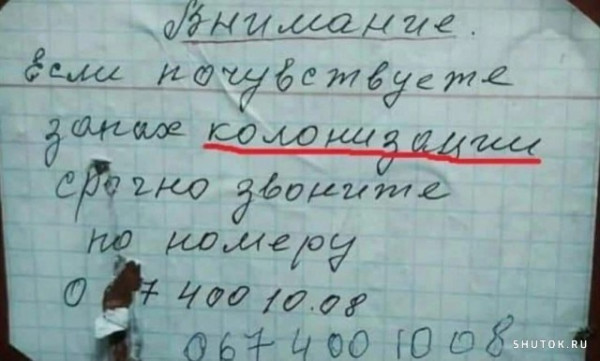 Внимание.
Если почувствуете
запах колонизации
срочно звоните
по номеру
0 7 400 10.08
067 400 10 08
SHUTOK.RU